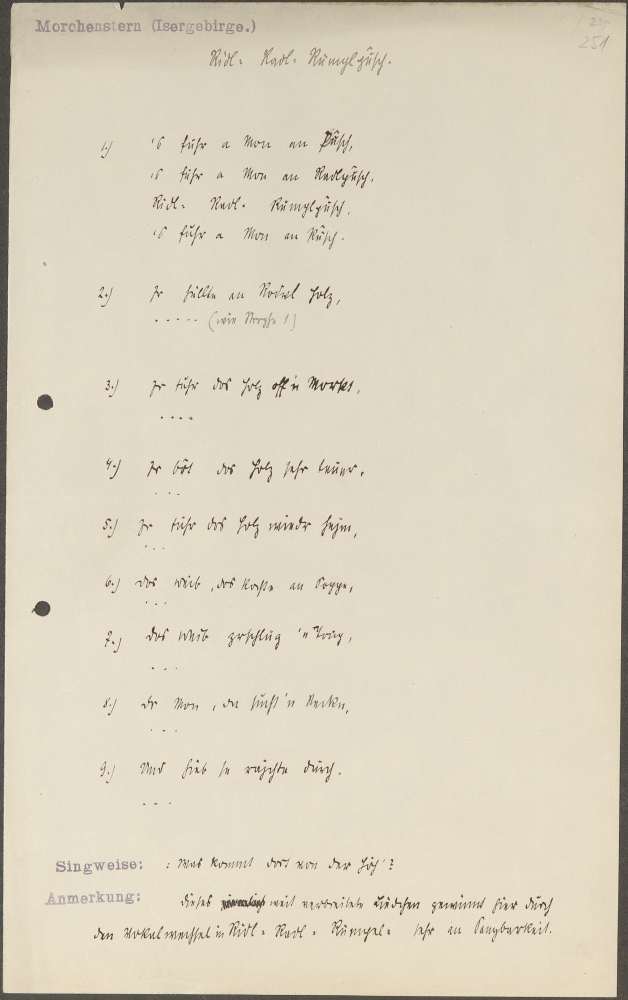 Morchenstern (Isergebirge.)
251
Ridl- Radl- Rumplpusch.
1.) 's fuhr a Mon an Pusch,
's fuhr a Mon an Radlpusch.
Ridl- Radl- Rumplpusch,
's fuhr a Mon an Pusch.
2.) Er hullte an Wol Holz,
. . . . . (wie Strophe 1)
3.) Er fuhr dos Holz off'n Morkt,
. . . .
4.) Er bot dos Holz sehr teuer,
. . .
5.) Er fuhr dos Holz wiedr hejm,
. . .
6.) Dos Weib, dos kochte an Soppe,
. . .
7.) Dos Weib zerschlug 'n Topp,
. . .
8.) Dr Mon, dr sucht'n Steckn,
. . .
9.) Und hieb se rajchte durch.
. . .
Singweise: : Was kommt dort von der Höh'?
Anmerkung: Dieses weit verbreitete Liedchen gewinnt hier durch
den Vokalwechsel in Ridl- Radl- Rumpel- sehr an Sangbarkeit.